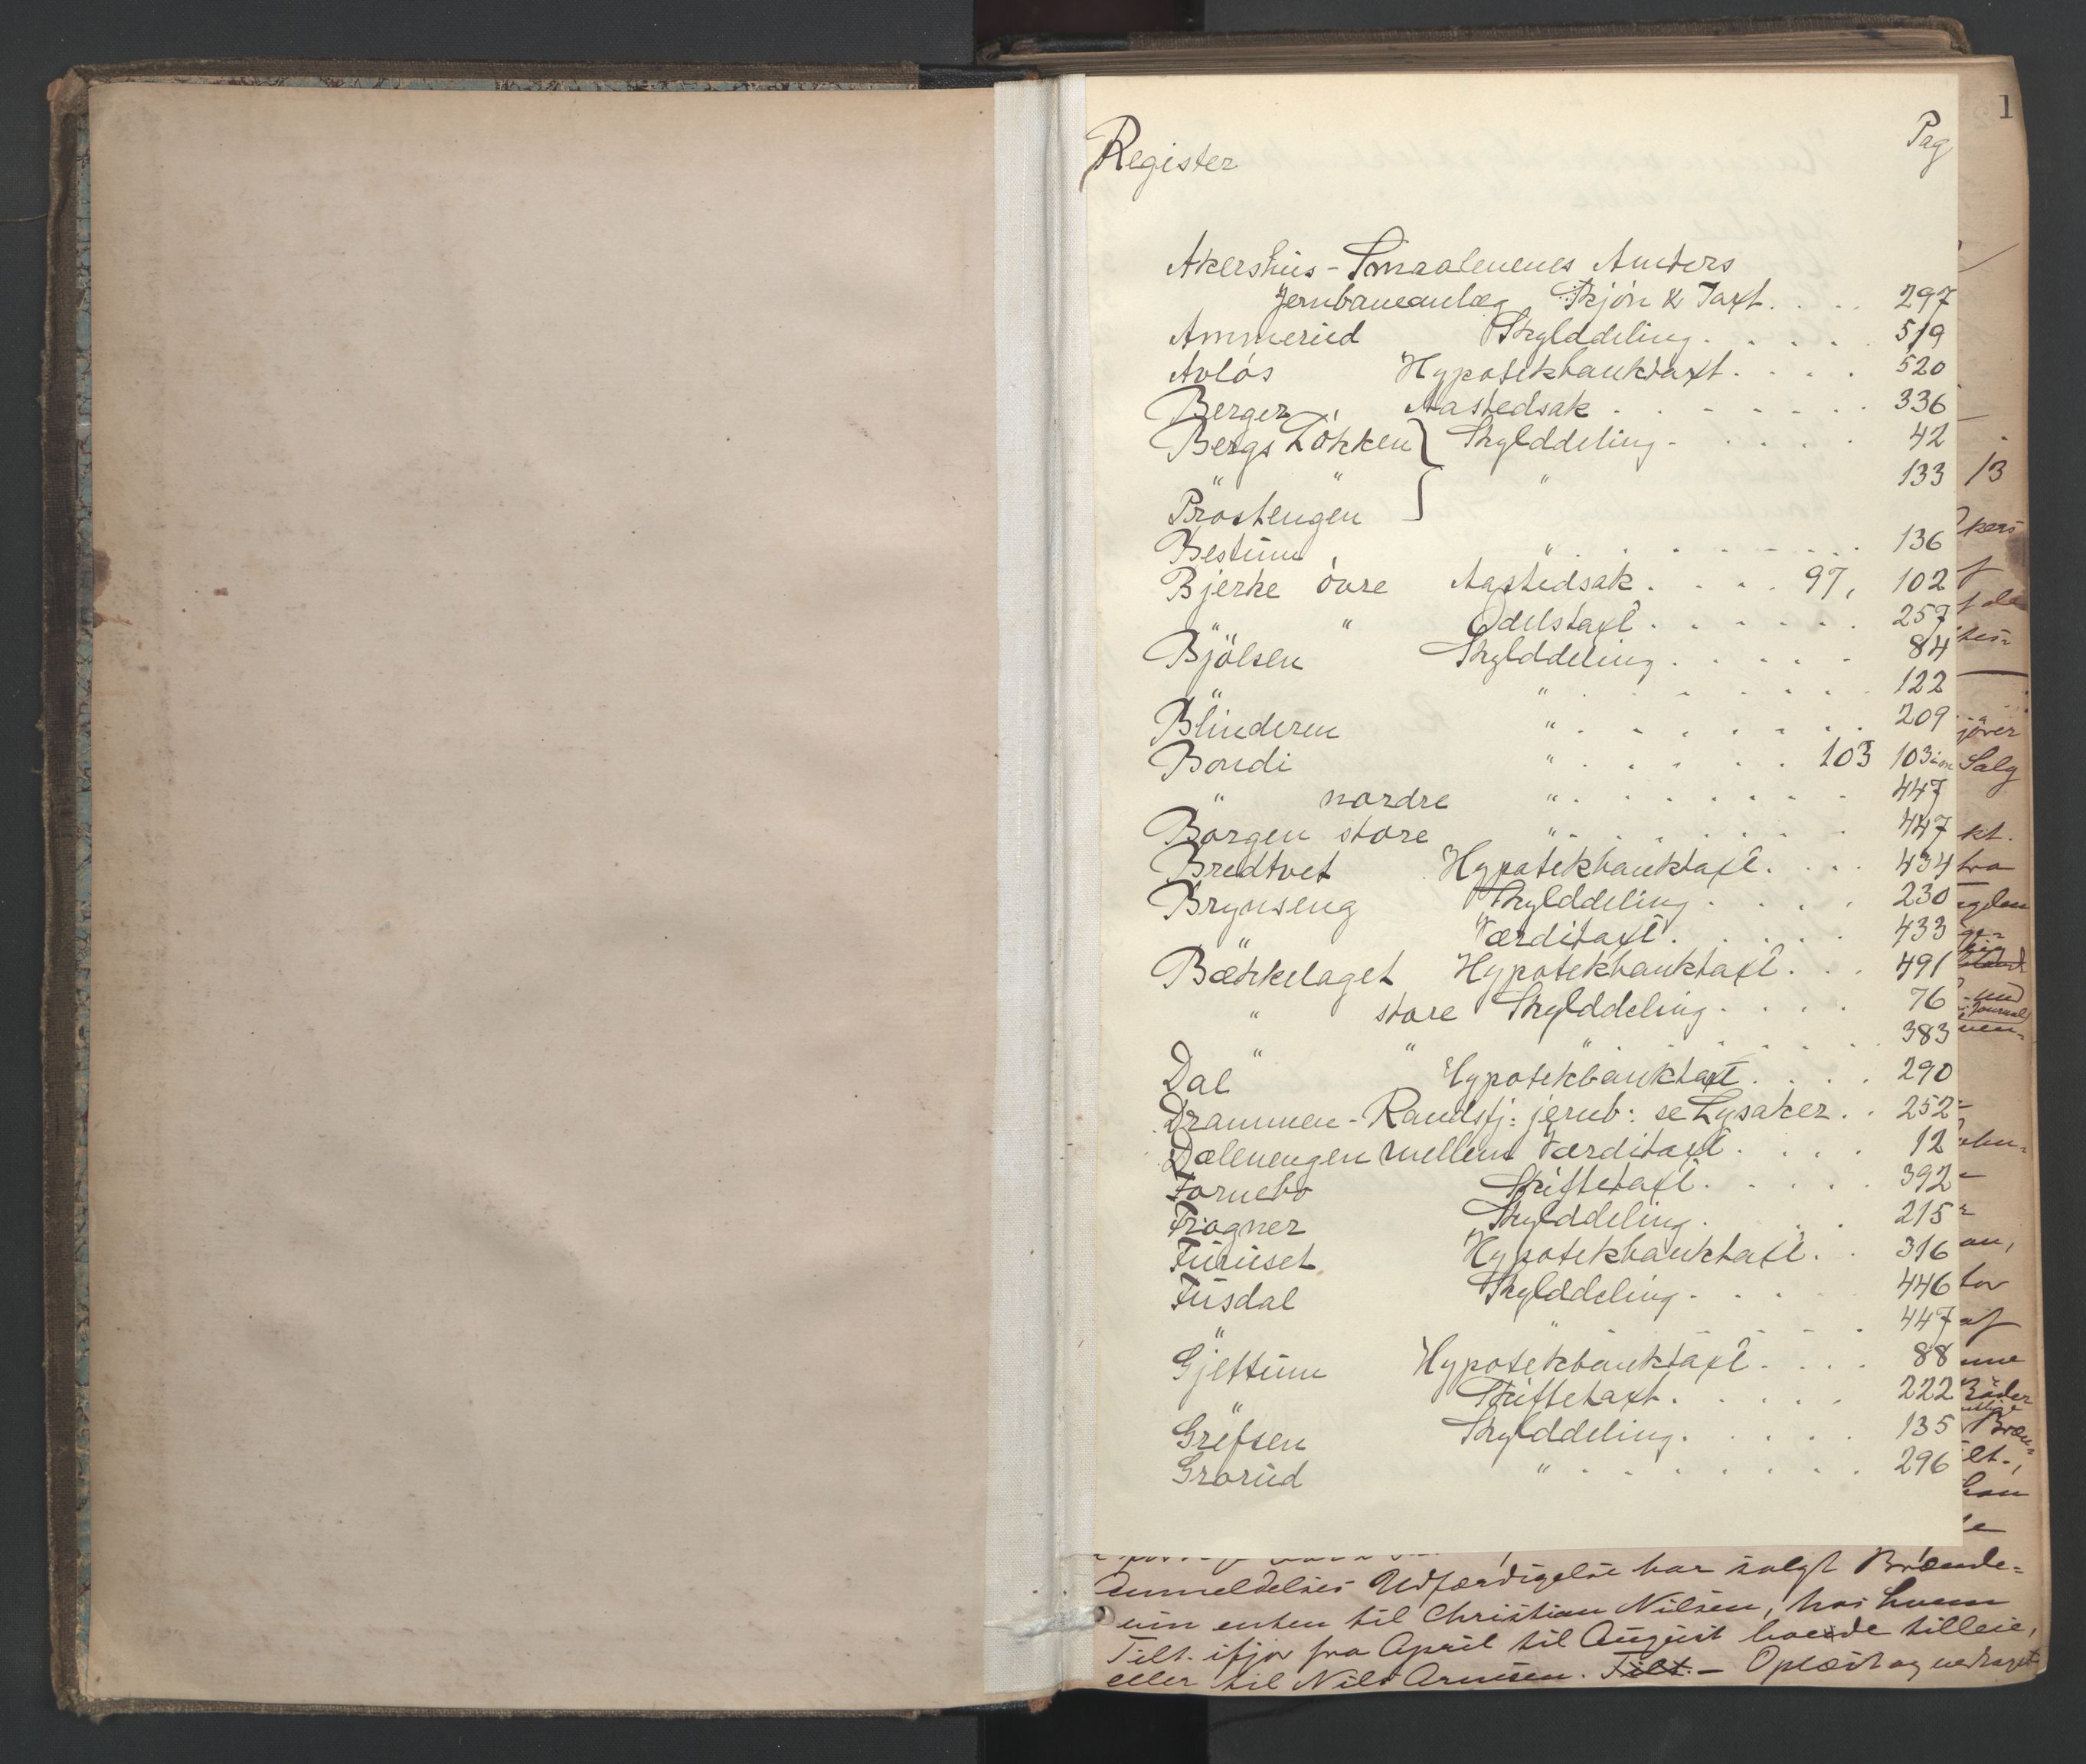 1
Register Pag
Akershus-Smaalenenes Amters
Jernbaneanlæg Skjön & Taxt. . . . 297
Ammerud Skylddeling. . . . . 519
Avlös Hypotekbanktaxt. . . . 520
Berger Aastedsak . . . . . . . 336
Bergs Lökken } Skylddeling . . . . . 42
" " " 133
Prostengen }
Bestum " . . . . . . . . 136
Bjerke övre Aastedsak . . . . 97, 102
" " Odelstaxt . . . . . . 257
Bjölsen Skylddeling . . . . . 84
" " . . . . . . . 122
Blinderen " . . . . . . . 209
Bondi " . . . . . 103 103
" nordre " . . . . . . . 447
Borgen store " . . . . . . . 447
Bredtvet Hypotekbanktaxt. . . . 434
Brynseng Skylddeling . . . . . 230
" Værditaxt. . . . . . 433
Bækkelaget Hypotekbanktaxt . . . 491
" store Skylddeling . . . . 76
" " " . . . . . . . . 383
Dal Hypotekbanktaxt . . . . 290
Drammen-Randsfj: jernb: se Lysaker . . 252
Dælenengen mellem Værditaxt . . . . 12
Fornebo Skiftetaxt . . . . . 392
Frogner Skylddeling . . . 215
Furuset Hypotekbanktaxt . . 316
Fusdal Skylddeling . . . . 446
" " . . . . . . . . 447
Gjettum Hypotekbanktaxt . . . . 88
" Skiftetaxt . . . . . 222
Grefsen Skylddeling . . . . . 135
Grorud " . . . . . . . . 296
13
jöver
Salg
kt.
fra
af
Anmeldelses Udfærdigelse har solgt Brænde=
vin enten til Christian Nilsen, hos hvem
Tilt. ifjor fra April til August boede tilleie,
eller til Nils Arnesen. Tilt. — Oplæst og vedtaget